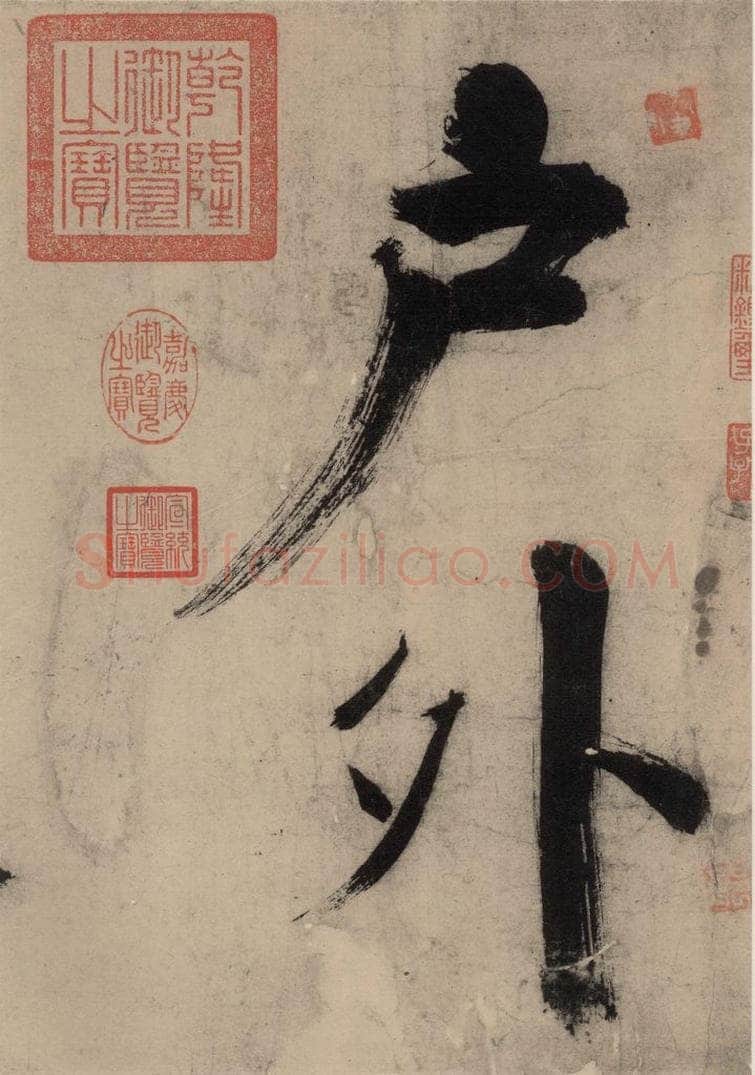 户外
乾隆
御覽
之寶
嘉慶
御覽
之寶
宣統
御覽
之寶
Shufaziliao.COM